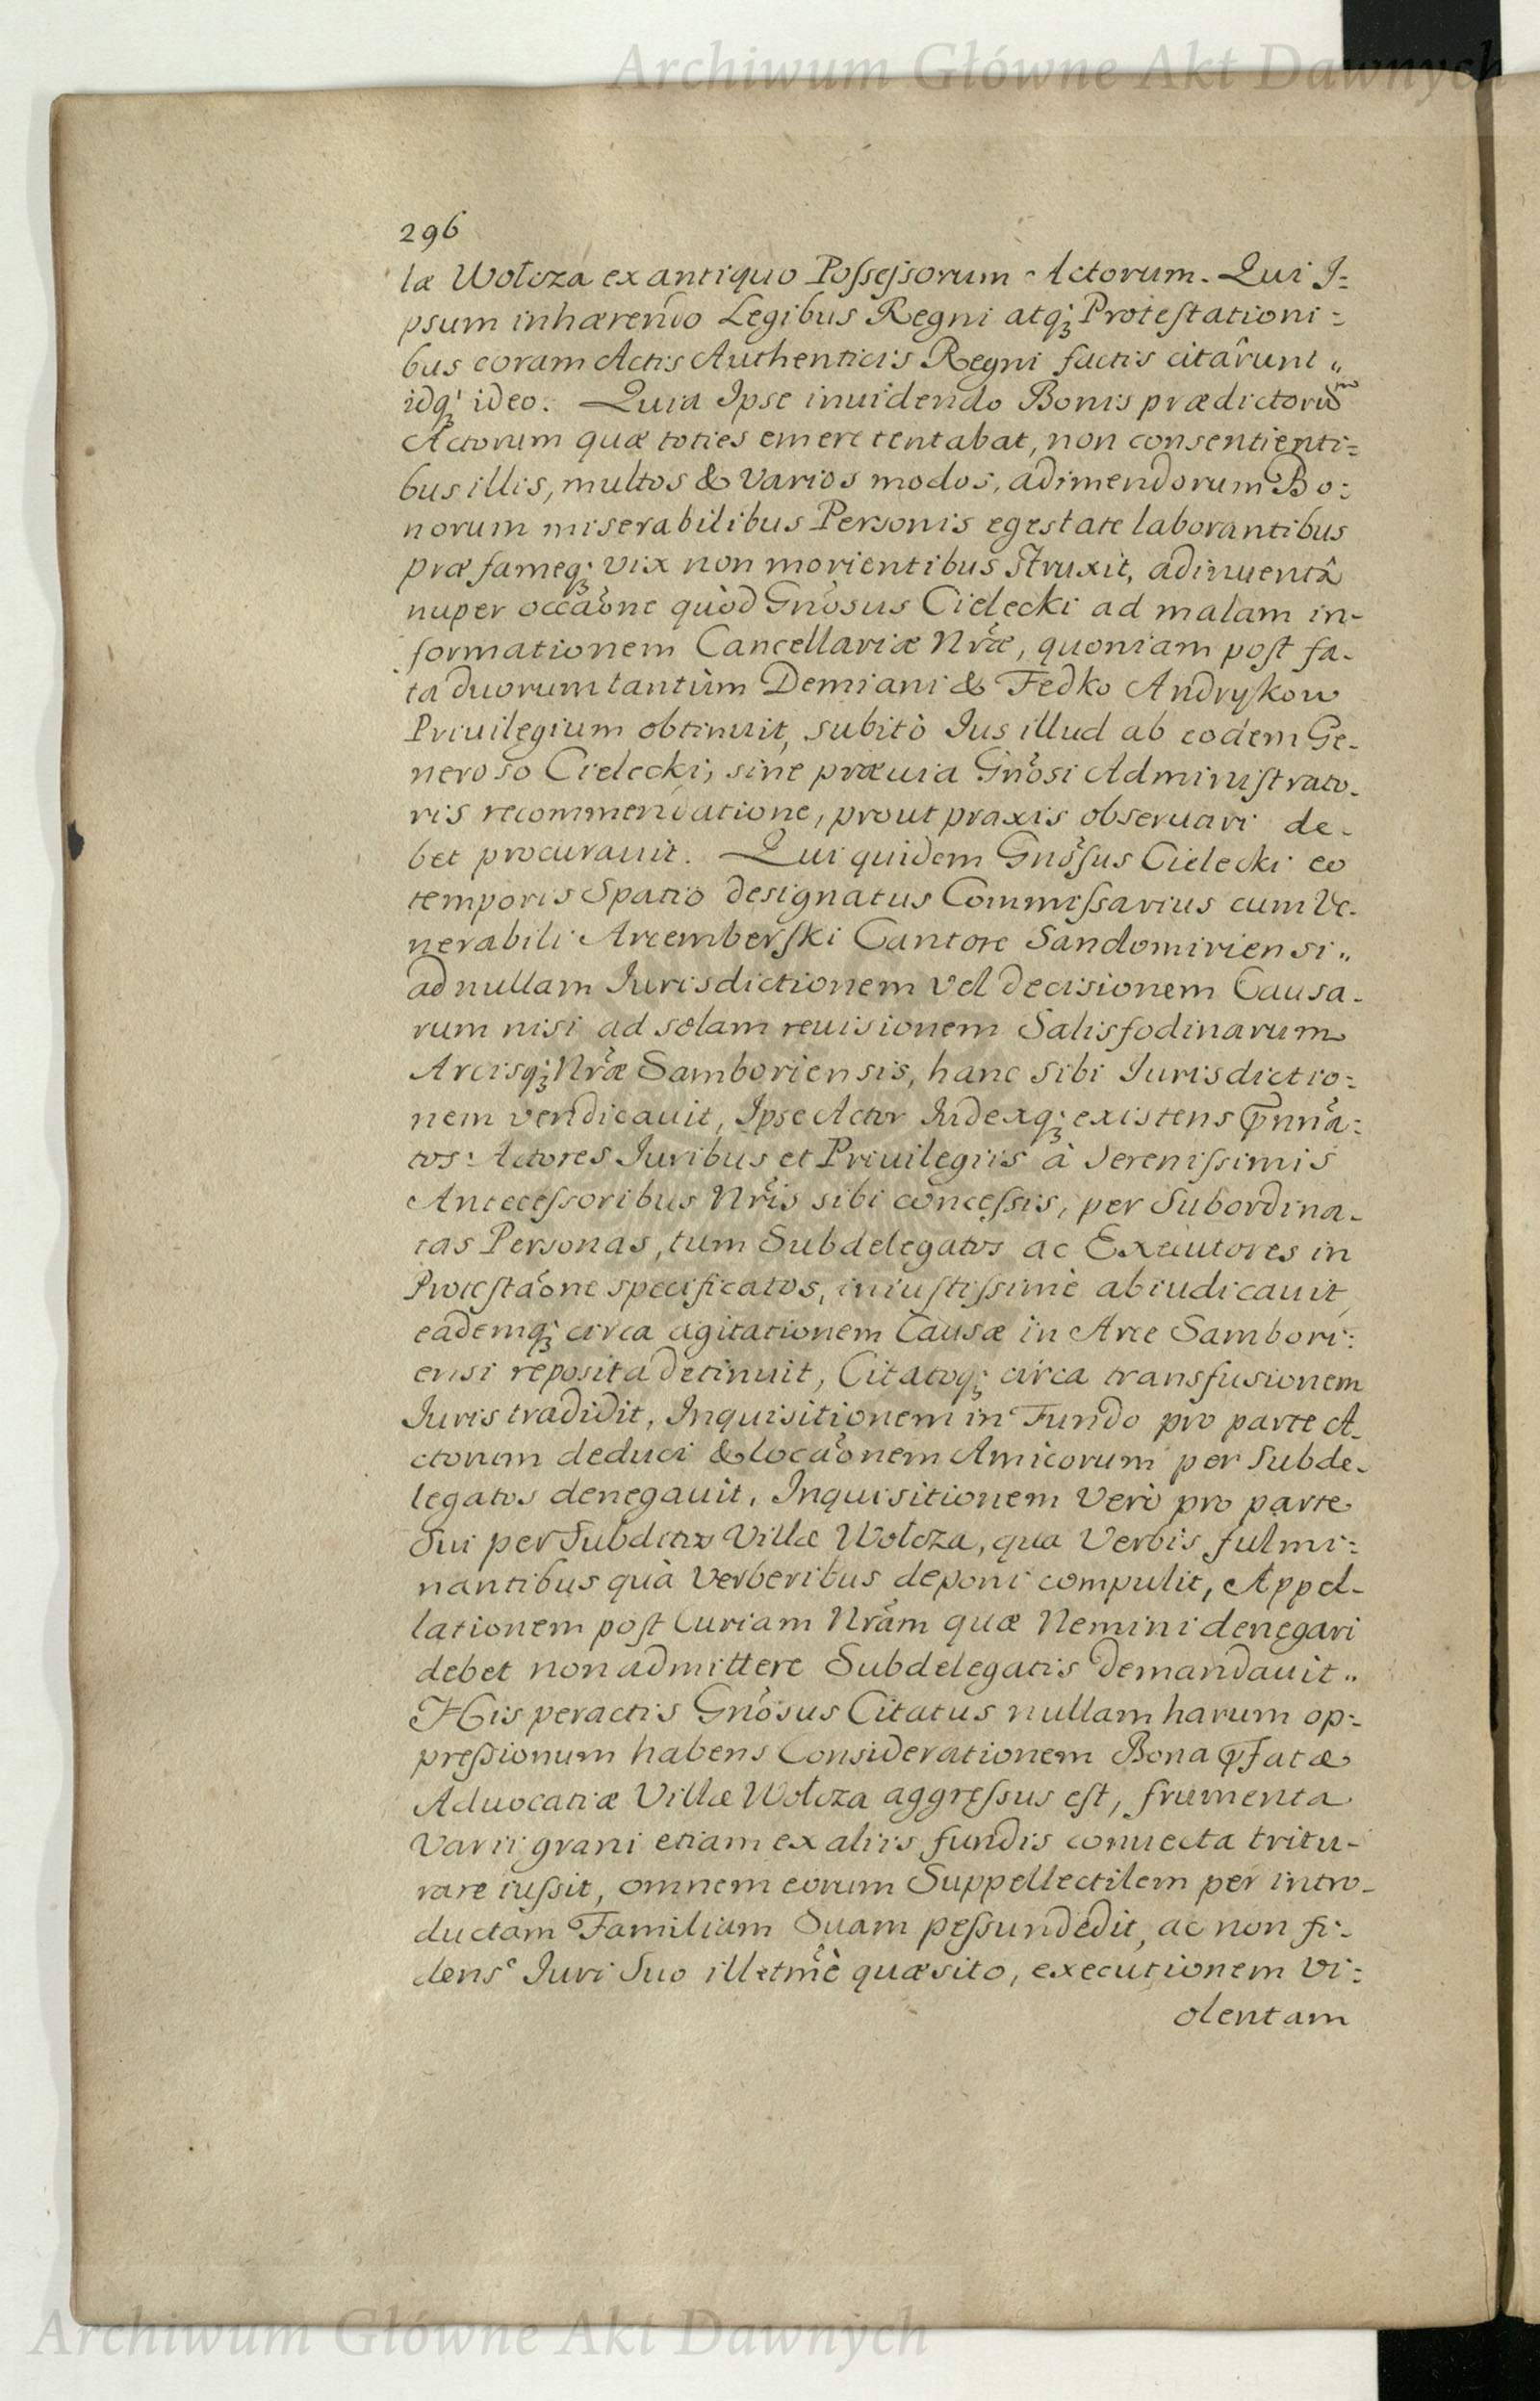 Archiwum Główne Akt Dawnych
296
læ Wołcza ex antiquo Possessorum Actorum. Qui I=
psum inhærendo Legibus Regni atq; Protestationi=
bus coram Actis Authenticis Regni factis citârunt "
idq; ideo. Quia Ipse inuidendo Bonis prædictorũ
Actorum quæ toties emere tentabat, non consentienti=
bus illis, multos & varios modos, adimendorum Bo=
norum miserabilibus Personis egestate laborantibus
præ fameq; vix non morientibus struxit, adinuentâ
nuper occãone quòd Gnõsus Cielecki ad malam in-
formationem Cancellariæ Nrãe, quoniam post fa-
ta duorum tantùm Demiani & Fedko Andryskow
Priuilegium obtinuit, subitò Jus illud ab eodem Ge-
neroso Cielecki, sine præuia Gnõsi Administrato-
ris recommendatione, prout praxis obseruari de-
bet procurauit. Qui quidem Gnõsus Cielecki eo
temporis Spatio designatus Commissarius cum Ve-
nerabili Arcemberski Cantore Sandomiriensi "
ad nullam Jurisdictionem vel decisionem Causa-
rum nisi ad solam reuisionem Salisfodinarum
Arcisq; Nrãe Samboriensis, hanc sibi Jurisdictio=
nem vendicauit, Ipse Actor Judexq; existens p̃nnã=
tos Actores Juribus et Priuilegiis à Serenissimis
Antecessoribus Nrĩs sibi concessis, per Subordina-
tas Personas, tum Subdelegatos ac Executores in
Protestãone specificatos, iniustissimè abiudicauit,
eademq; circa agitationem Causæ in Arce Sambori=
ensi reposita detinuit, Citatoq; circa transfusionem
Juris tradidit, Inquisitionem in Fundo pro parte A-
ctorum deduci & locãonem Amicorum per Subde-
legatos denegauit, Inquisitionem verò pro parte
Sui per Subditos Villæ Wołcza, qua Verbis fulmi=
nantibus quà verberibus deponi compulit, Appel-
lationem post Curiam Nrãm quæ Nemini denegari
debet non admittere Subdelegatis demandauit "
His peractis Gnõsus Citatus nullam harum op=
pressionum habens Considerationem Bona p̃fatæ
Aduocatiæ Villæ Wołcza aggressus est, frumenta
Varii grani etiam ex aliis fundis conuecta tritu-
rare iussit, omnem eorum Suppellectilem per intro-
ductam Familiam Suam pessundedit, ac non fi=
dens Juri Suo illetmẽ quæsito, executionem vi=
olentam
Archiwum Główne Akt Dawnych